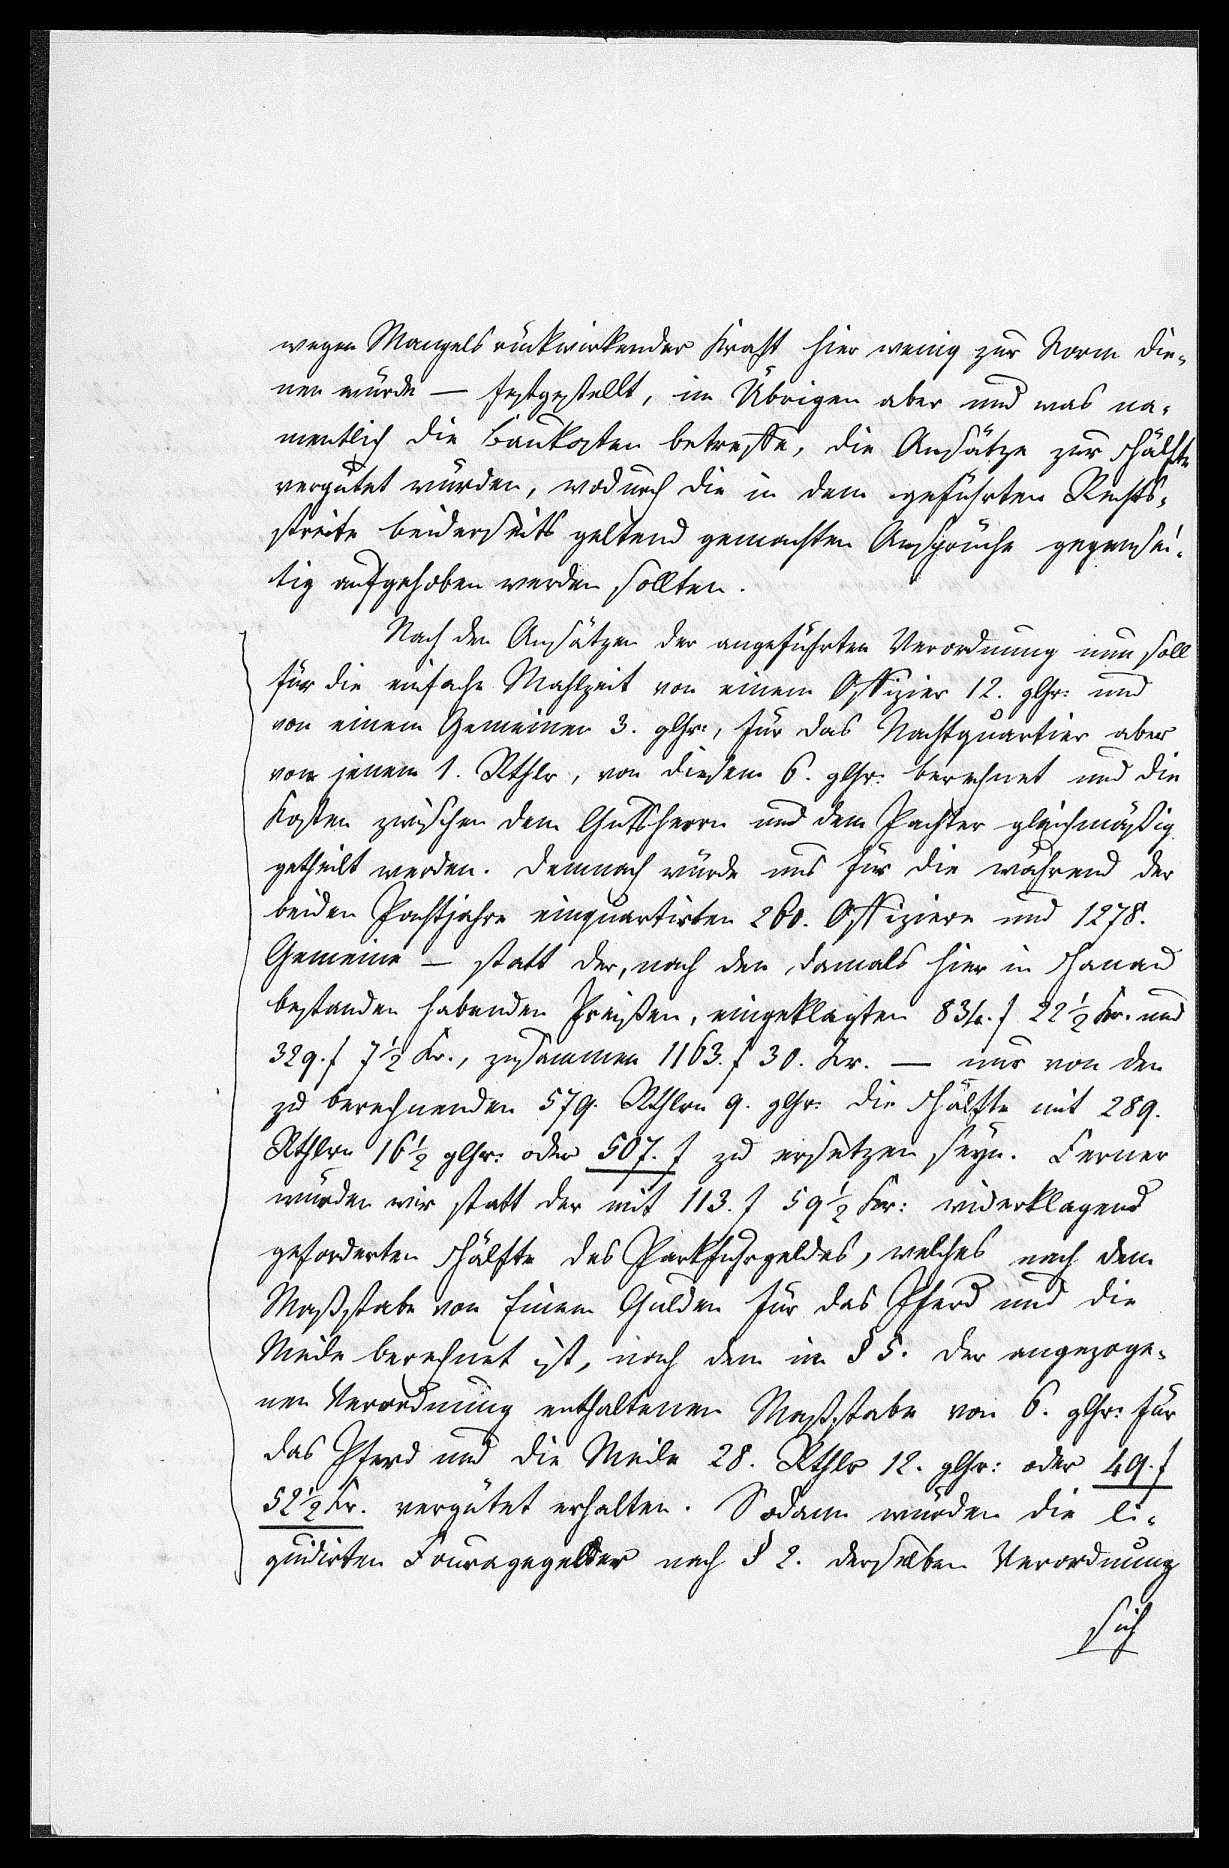 wegen Mangels rückwirkender Kraft hier wenig zur Norm die-
nen würde — festgestellt, im Übrigen aber und was na-
mentlich die Baukosten betreffe, die Ansätze zur Hälfte
vergütet würden, wodurch die in dem geführten Rechts-
streite beiderseits geltend gemachten Ansprüche gegensei-
tig aufgehoben werden sollten.
Nach den Ansätzen der angeführten Verordnung nun soll
für die einfache Mahlzeit von einem Offizier 12. gGr: und
von einem Gemeinen 3. gGr:, für das Nachtquartier aber
von jenem 1. Rthlr, von diesem 6. gGr: berechnet und die
Kosten zwischen dem Gutsherrn und dem Pachter gleichmäßig
getheilt werden. Demnach würde uns für die während der
beiden Pachtjahre einquartirten 260. Offiziere und 1278.
Gemeine — statt der, nach den damals hier in Hanau
bestanden habenden Preißen, eingeklagten 834. f 22 ½ Kr. und
329. f 7 ½ Kr., zusammen 1163. f 30. Kr. — nur von den
zu berechnenden 579. Rthlrn 9. gGr: die Hälfte mit 289.
Rthlrn 16 ½ gGr: oder 507. f zu ersetzen seyn. Ferner
würden wir statt der mit 113. f 59 ½ Kr: widerklagend
geforderten Hälfte des Parkfuhrgeldes, welches nach dem
Maßstabe von Einem Gulden für das Pferd und die
Meile berechnet ist, nach dem im § 5. der angezoge-
nen Verordnung enthaltenen Maßstabe von 6. gGr: für
das Pferd und die Meile 28. Rthlr 12. gGr: oder 49. f
52 ½ Kr. vergütet erhalten. Sodann würden die li-
quidirten Fouragegelder nach § 2. derselben Verordnung
sich